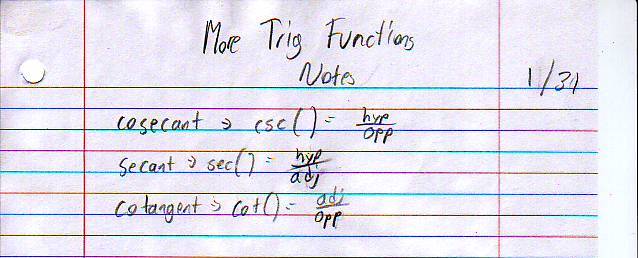 More Trig Functions
Notes
1/31
cosecant → csc() = hyp/opp
secant → sec() = hyp/adj
cotangent → cot() = adj/opp